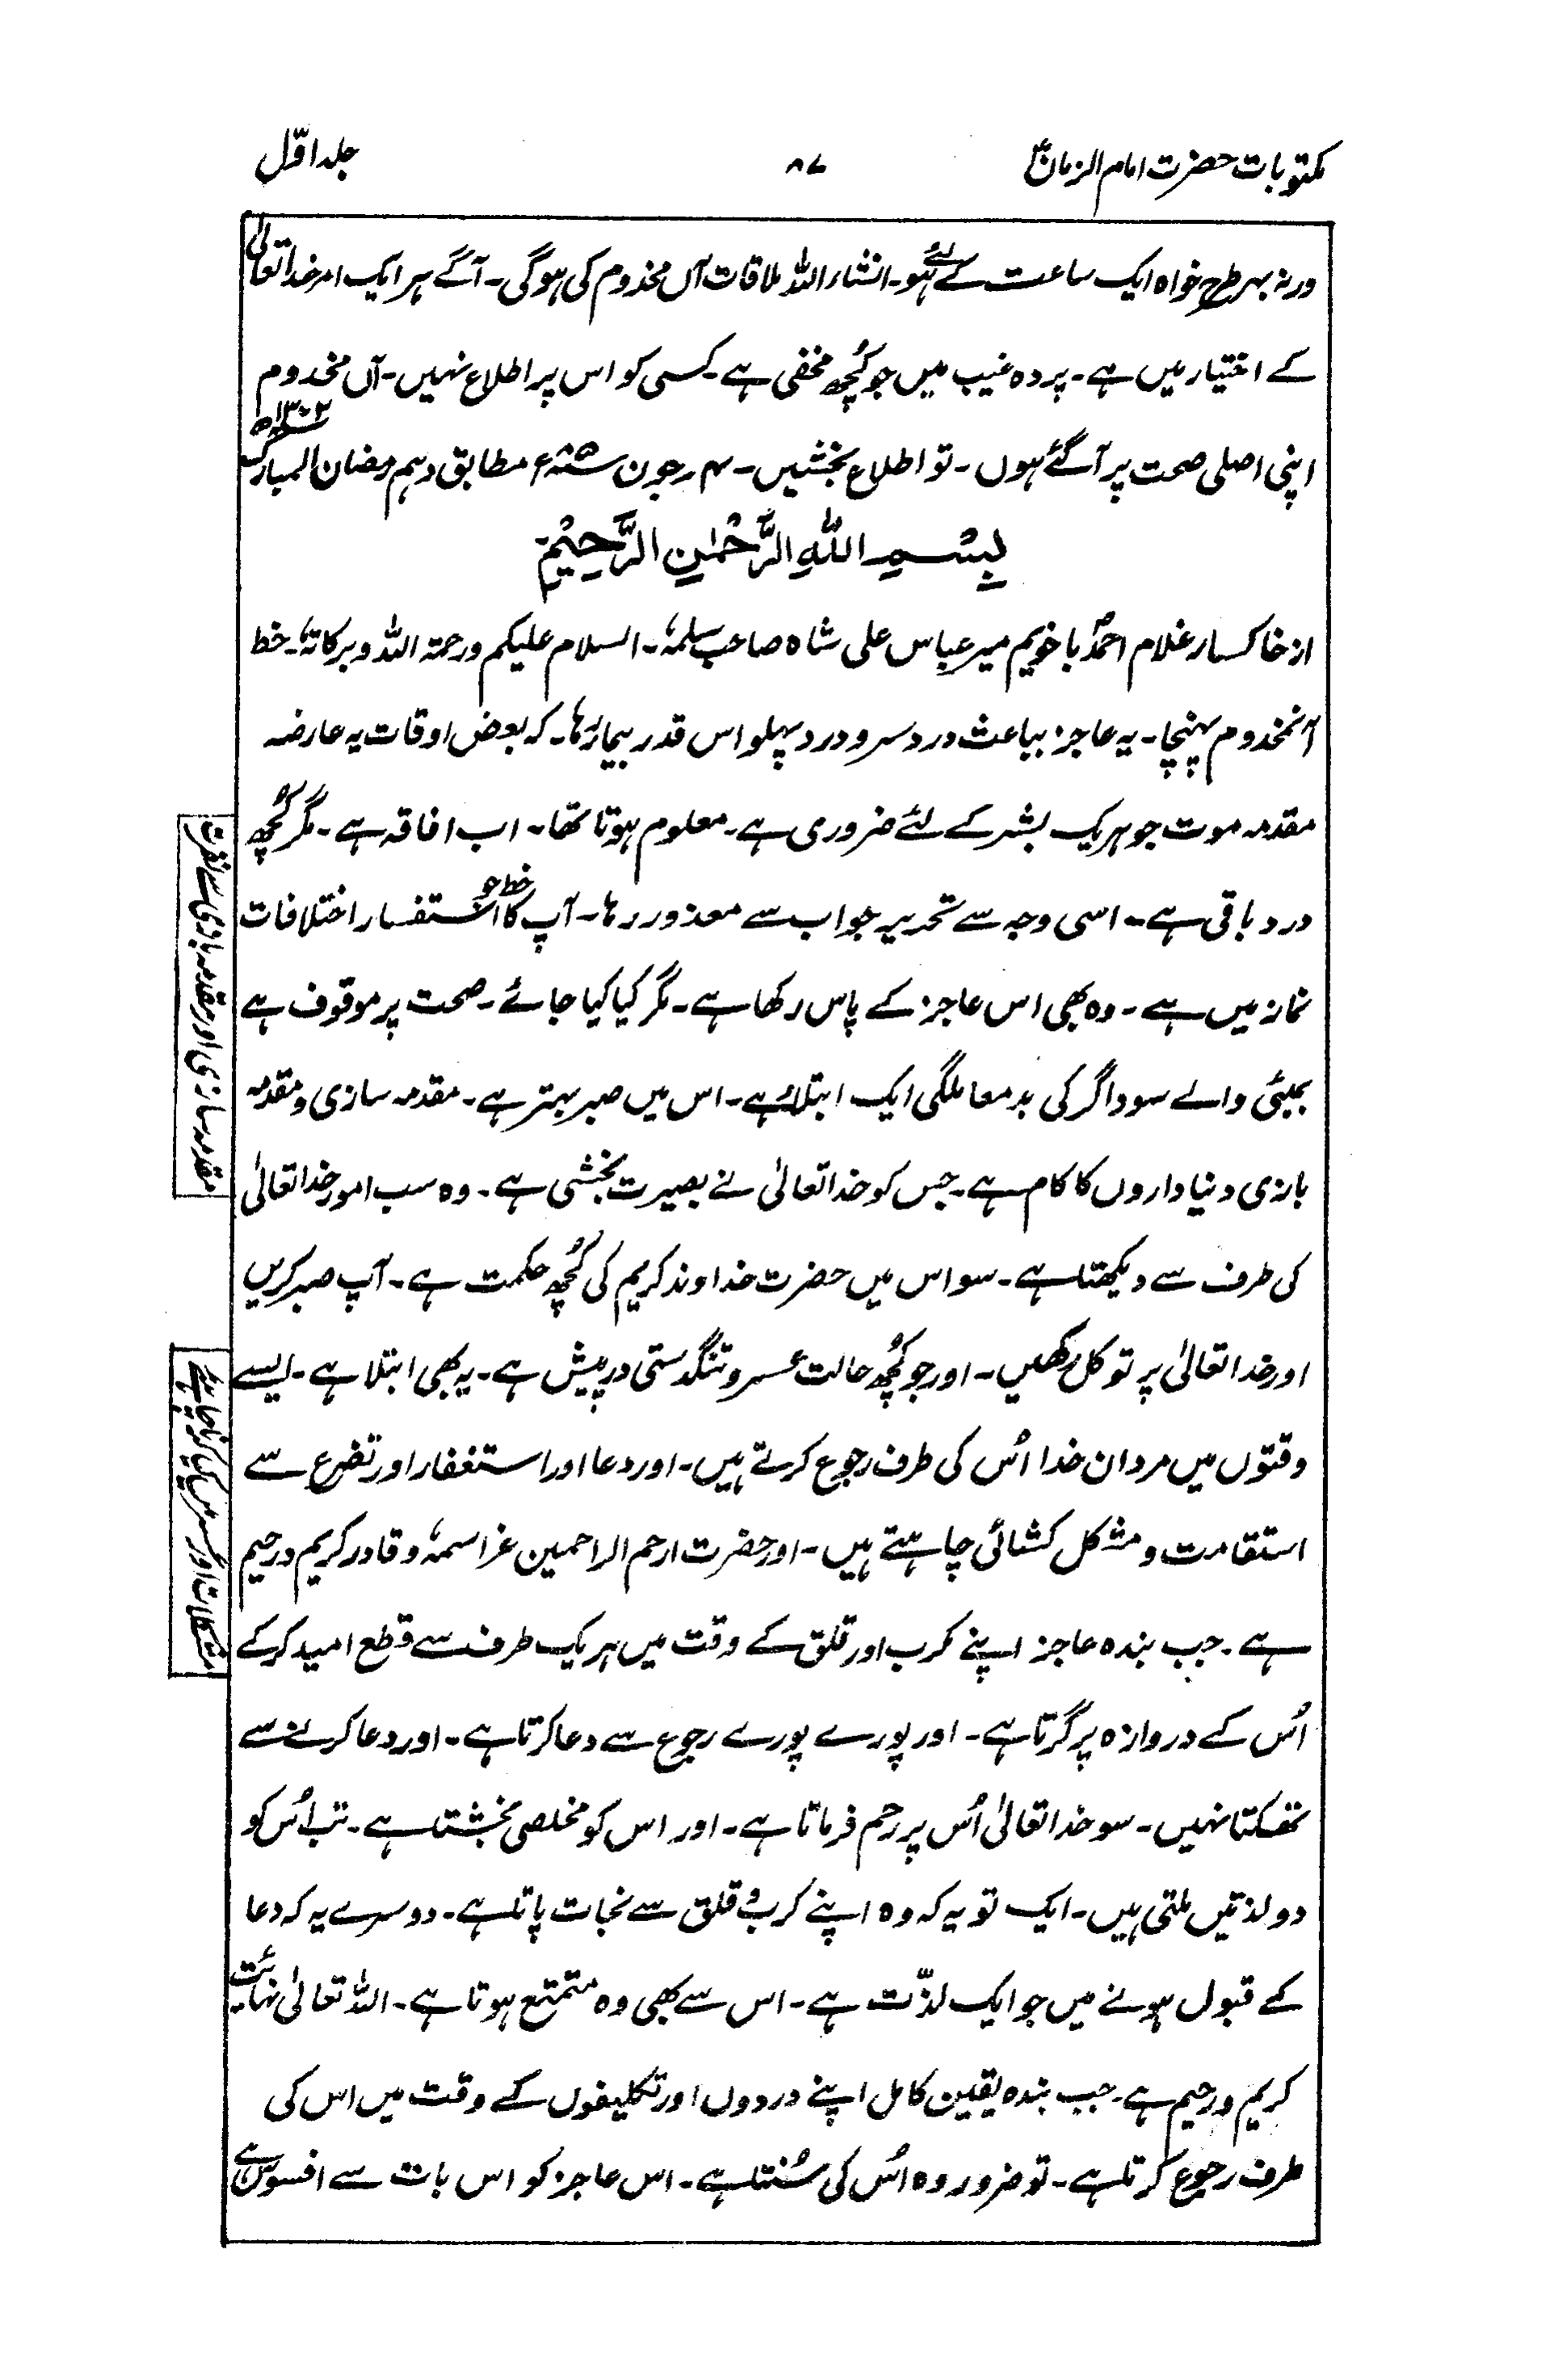 مکتوبات حضرت امام الزمانؑ ۸۷ جلد اوّل
ورنہ بہر طرح خواہ ایک ساعت کے لئے ہو۔ انشاء اللہ ملاقات آں مخدوم کی ہوگی۔ آگے ہر ایک امر خدا تعالیٰ
کے اختیار میں ہے۔ پردہ غیب میں جو کُچھ مخفی ہے۔ کسی کو اس پر اطلاع نہیں۔ آں مخدوم
اپنی اصلی صحت پر آگئے ہوں۔ تو اطلاع بخشیں۔ ۴؍جون ۸۵ء مطابق دہم رمضان المبارک ۱۳۰۲ھ
بِسْمِ اللّٰهِ الرَّحْمٰنِ الرَّحِيْمِ
از خاکسار غلام احمدؐ باخویم میر عباس علی شاہ صاحب سلمہٗ۔ السلام علیکم ورحمۃ اللہ وبرکاتہٗ۔ خط
آنمخدوم پہنچا۔ یہ عاجز بباعث درد سر و درد پہلو اس قدر بیمار رہا۔ کہ بعض اوقات یہ عارضہ
مقدمہ موت جو ہریک بشر کے لئے ضروری ہے۔ معلوم ہوتا تھا۔ اب افاقہ ہے۔ مگر کُچھ
درد باقی ہے۔ اسی وجہ سے تحریر جواب سے معذور رہا۔ آپ کا خط جو استفسار اختلافات
نماز میں ہے۔ وہ بھی اس عاجز کے پاس رکھا ہے۔ مگر کیا کیا جائے۔ صحت پر موقوف ہے
بمبئی والے سوداگر کی بدمعاملگی ایک ابتلاء ہے۔ اس میں صبر بہتر ہے۔ مقدمہ سازی و مقدمہ
بازی دنیاداروں کا کام ہے۔ جس کو خدا تعالیٰ نے بصیرت بخشی ہے۔ وہ سب امور خدا تعالیٰ
کی طرف سے دیکھتا ہے۔ سو اس میں حضرت خداوند کریم کی کُچھ حکمت ہے۔ آپ صبر کریں
اور خدا تعالیٰ پر توکل رکھیں۔ اور جو کُچھ حالت عسر و تنگدستی درپیش ہے۔ یہ بھی ابتلا ہے۔ ایسے
وقتوں میں مردان خدا اُس کی طرف رجوع کرتے ہیں۔ اور دعا اور استغفار اور تضرع سے
استقامت و مشکل کشائی چاہتے ہیں۔ اور حضرت ارحم الراحمین عزاسمہٗ و قادر کریم و رحیم
ہے۔ جب بندہ عاجز اپنے کرب اور قلق کے وقت میں ہریک طرف سے قطع امید کرکے
اُس کے دروازہ پر گرتا ہے۔ اور پورے پورے رجوع سے دعا کرتا ہے۔ اور دعا کرنے سے
تھکتا نہیں۔ سو خدا تعالیٰ اُس پر رحم فرماتا ہے۔ اور اس کو مخلصی بخشتا ہے۔ تب اُس کو
دو لذتیں ملتی ہیں۔ ایک تو یہ کہ وہ اپنے کرب و قلق سے نجات پاتا ہے۔ دوسرے یہ کہ دعا
کے قبول ہونے میں جو ایک لذّت ہے۔ اس سے بھی وہ متمتع ہوتا ہے۔ اللہ تعالیٰ نہائت
کریم و رحیم ہے۔ جب بندہ یقین کامل اپنے دردوں اور تکلیفوں کے وقت میں اس کی
طرف رجوع کرتا ہے۔ تو ضرور وہ اُس کی سُنتا ہے۔ اس عاجز کو اس بات سے افسوس ہے
مقدمہ سازی اور مقدمہ بازی سے نفرت
مشکلات اور عسر میں کیا کرنا چاہیئے